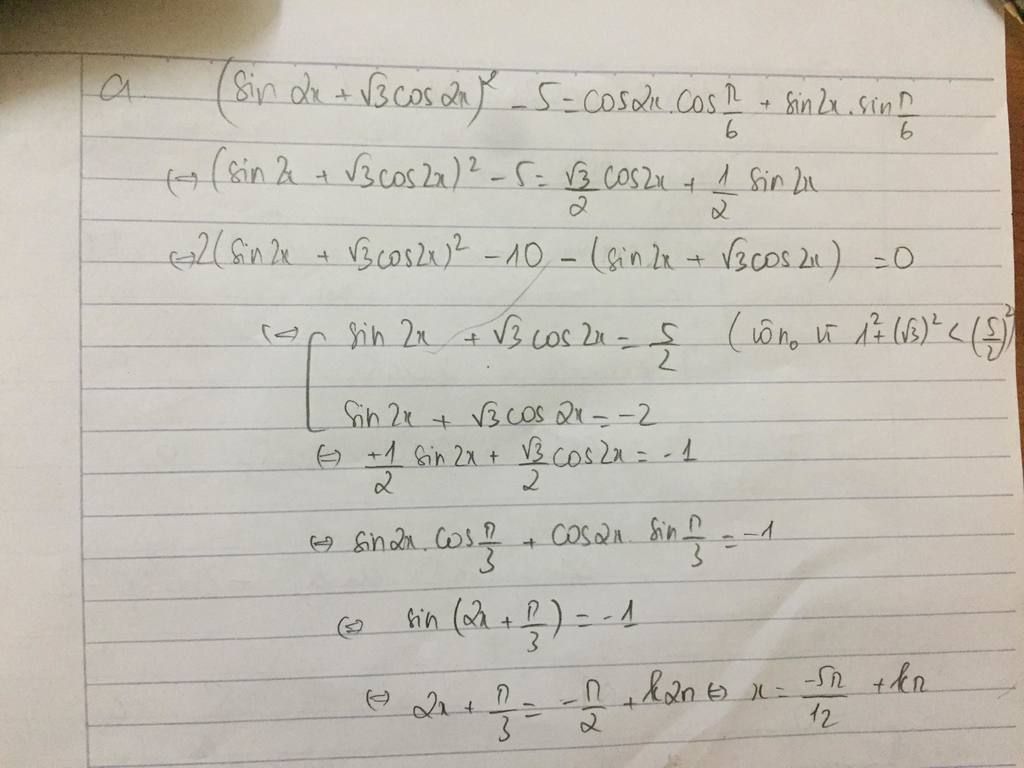 a (sin 2x + √3 cos 2x)² - 5 = cos2x.cos π/6 + sin2x.sin π/6
⇔ (sin 2x + √3cos2x)² - 5 = √3/2 cos2x + 1/2 sin 2x
⇔ 2(sin2x + √3cos2x)² - 10 - (sin 2x + √3cos2x) = 0
⇔ [ sin 2x + √3 cos 2x = 5/2 (vôn₀ vì 1² + (√3)² < (5/2)²
sin2x + √3 cos 2x = -2
⇔ +1/2 sin2x + √3/2 cos2x = -1
⇔ sin2x.cos π/3 + cos2x. sin π/3 = -1
⇔ sin (2x + π/3) = -1
⇔ 2x + π/3 = -π/2 + k2π ⇔ x = -5π/12 + kπ